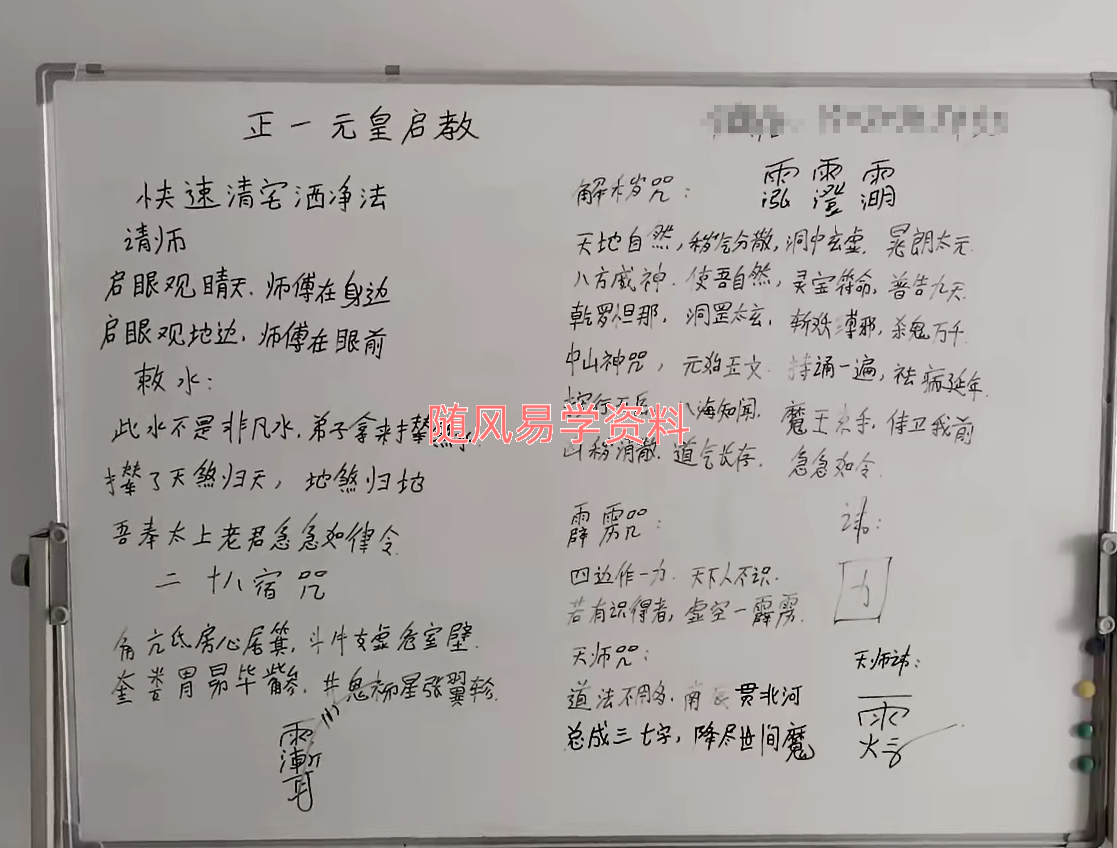 正一元皇启教
快速清宅洒净法
请师
启眼观晴天.师傅在身边
启眼观地边,师傅在眼前
敕水:
此水不是非凡水,弟子拿来
了天煞归天,地煞归地
吾奉太上老君急急如律令
二十八宿咒
角亢氐房心尾箕,斗牛
虚危室壁.
奎娄胃昴毕觜参.井鬼柳星张翼轸.
解秽咒:
天地自然,秽气分散,洞中玄虚.晃朗太元.
八方威神.使吾自然,灵宝符命,普告九天.
乾罗怛那,洞罡太玄.斩妖缚邪,杀鬼万千.
中山神咒,元始玉文.持诵一遍,祛病延年.
八海知闻.魔王束手,侍卫我前
凶秽消散.道气长存.急急如令.
霹雳咒:
讳:
四边作一力.天下人不识.
若有识得者,虚空一霹雳.
力
天师咒:
天师讳:
道法不用多,南辰贯北河
总成三七字,降尽世间魔
随风易学资料